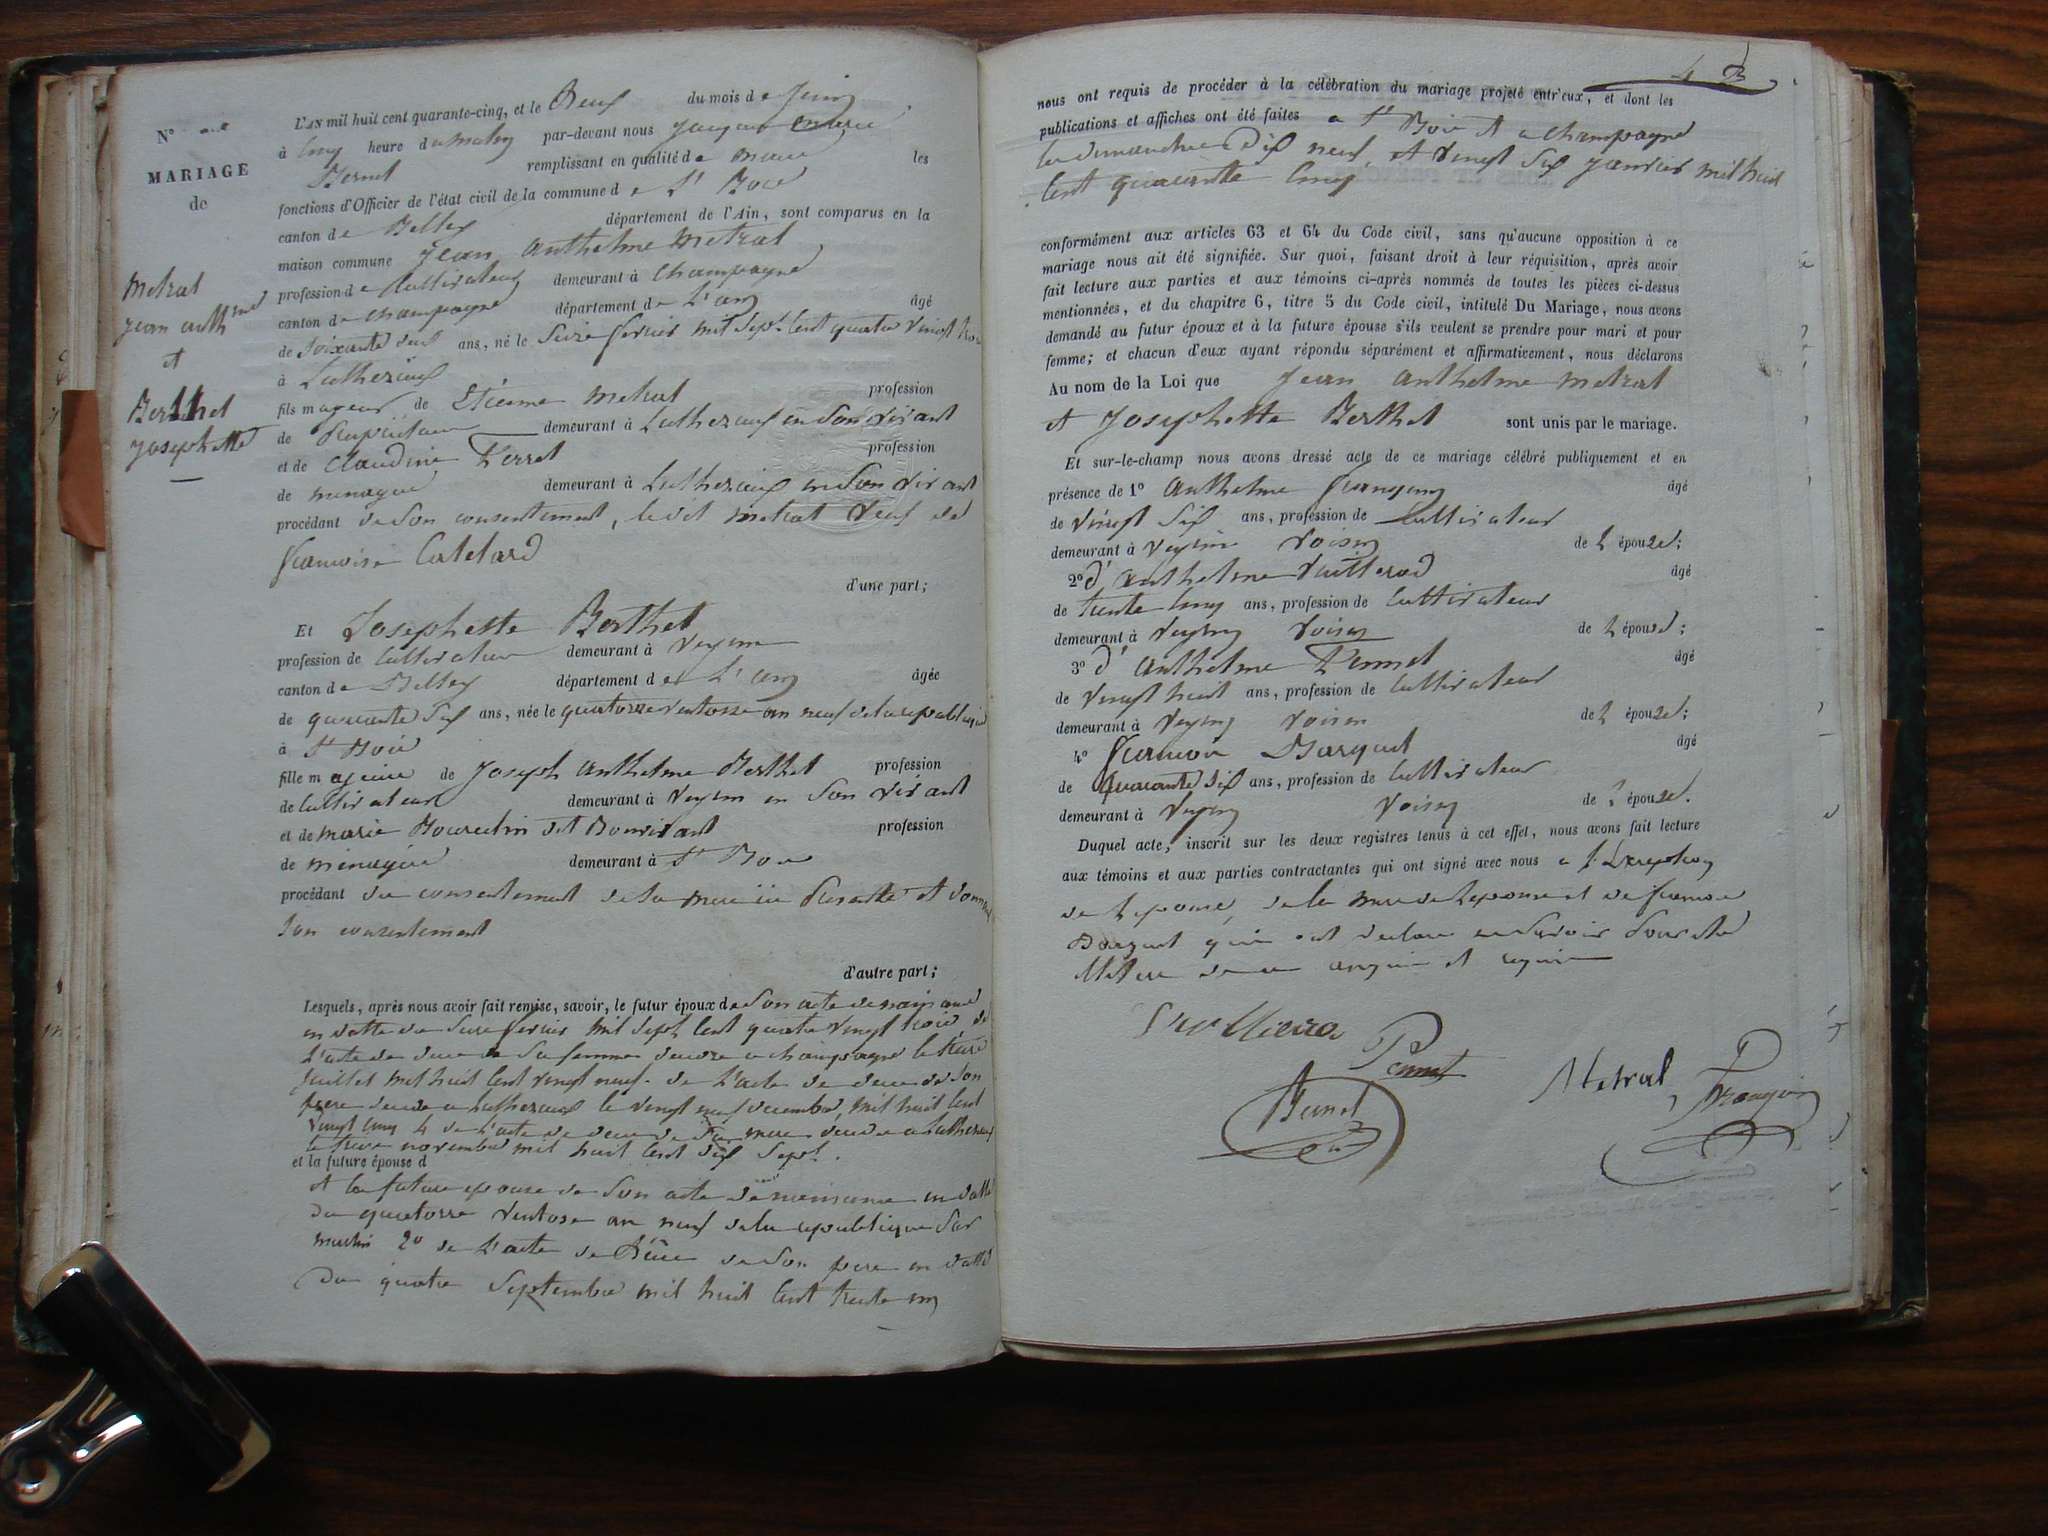 N°
MARIAGE
de
Metral
jean anth
et
Berthet
josephette
L'AN mil huit cent quarante-cinq, et le du mois de
à cinq heure du matin par-devant nous jacques
remplissant en qualité de maire les
fonctions d'Officier de l'état civil de la commune de St Bois
canton de Belley département de l'Ain, sont comparus en la
maison commune Jean anthelme metral
profession de Cultivateur demeurant à Champagne
canton de champagne département de L'ain âgé
de Soixante deux ans, né le Seize fevrier mil Sept Cent quatre vingt trois
à Luthezieux
fils mageur de Etienne metral profession
de demeurant à Luthezieux en Son vivant
et de Claudine profession
de menagere demeurant à Luthezieux en Son vivant
procédant de Son consentement, ledit metral veuf de
francoise Catelard
d'une part;
Et Josephette Berthet
profession de cultivateur demeurant à Veyrin
canton de Belley département de L'ain âgée
de quarante ans, née le quatorze ventose an neuf de la republique
à St Bois
fille mageure de Joseph anthelme Berthet profession
de Cultivateur demeurant à Veyrin en Son vivant
et de marie dit profession
de menagere demeurant à St Bois
procédant du consentement de Sa mere ici presente et donnant
Son consentement
d'autre part;
Lesquels, après nous avoir fait remise, savoir, le futur époux de Son acte de naissance
en datte du Seize fevrier mil Sept Cent quatre vingt trois, de
L'acte de deces de Sa femme decedee a champagne le treize
juillet mil huit Cent vingt neuf. de L'acte de deces de Son
pere decede a Luthezieux le vingt neuf decembre, mil huit Cent
vingt Cinq 4 de L'acte de deces de Sa mere decedee a Luthezieux
le treize novembre mil huit Cent dix Sept.
et la future épouse d
et la future epouse de Son acte de naissance en datte
du quatorze ventose an neuf de la republique
2° de L'acte de deces de Son pere en datte
du quatre Septembre mil huit Cent trente un
nous ont requis de procéder à la célébration du mariage projeté entr'eux, et dont les
publications et affiches ont été faites a St Bois et a champagne
les dimanches Dix neuf, et vingt Six janvier mil huit
Cent quarante Cinq
conformément aux articles 63 et 64 du Code civil, sans qu'aucune opposition à ce
mariage nous ait été signifiée. Sur quoi, faisant droit à leur réquisition, après avoir
fait lecture aux parties et aux témoins ci-après nommés de toutes les pièces ci-dessus
mentionnées, et du chapitre 6, titre 5 du Code civil, intitulé Du Mariage, nous avons
demandé au futur époux et à la future épouse s'ils veulent se prendre pour mari et pour
femme; et chacun d'eux ayant répondu séparément et affirmativement, nous déclarons
Au nom de la Loi que Jean anthelme metral
et Josephette Berthet sont unis par le mariage.
Et sur-le-champ nous avons dressé acte de ce mariage célébré publiquement et en
présence de 1° anthelme âgé
de vingt Six ans, profession de Cultivateur
demeurant à Veyrin Voisin de L'épouse;
2° d'anthelme âgé
de trente Cinq ans, profession de Cultivateur
demeurant à Veyrin Voisin de L'épouse;
3° d'anthelme Pennet âgé
de vingt huit ans, profession de Cultivateur
demeurant à Veyrin Voisin de L'épouse;
4° francois âgé
de Quarante Six ans, profession de Cultivateur
demeurant à Veyrin Voisin de L'épouse.
Duquel acte, inscrit sur les deux registres tenus à cet effet, nous avons fait lecture
aux témoins et aux parties contractantes qui ont signé avec nous a L'exception
de L'epouse, de la mere de Lepouse et de francois
qui ont declare ne Savoir
de ce enquis et requis
Metral